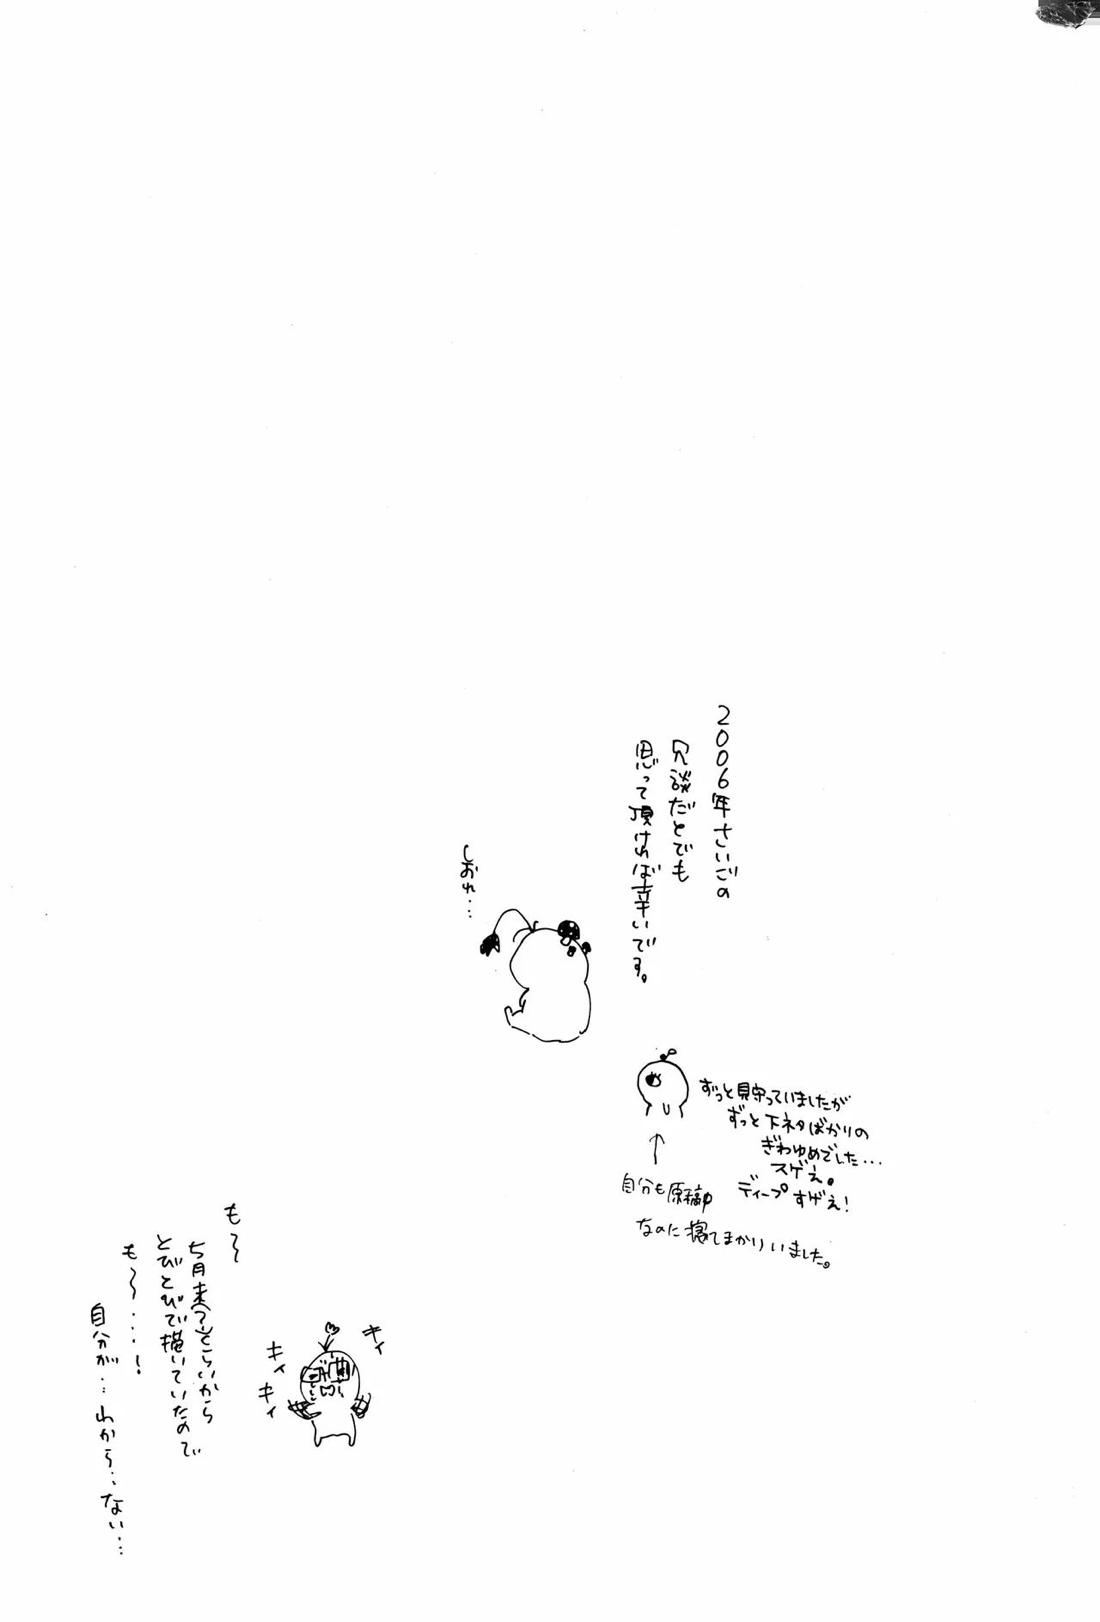 2006年さいごの
冗談だとでも
思って頂ければ幸いです。
しおれ…
ずっと見守っていましたが
ずっと下ネタばかりの
ぎわゆめでした…
スゲえ。
ディープすげえ!
自分も原稿中
なのに寝てまかりいました。
も〜
5月末(?)ぐらいから
とびとびで描いていたので
も〜‥‥!
自分が…わから…ない…
キィ
キィ
キィ